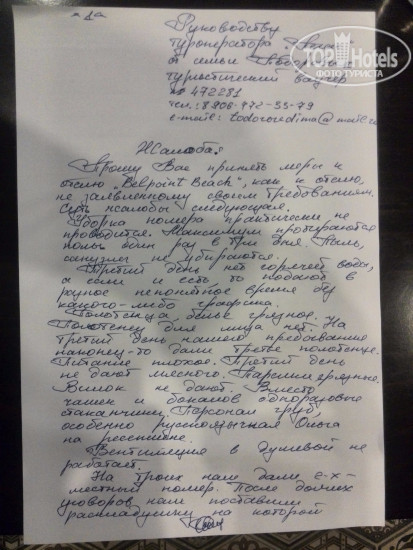 Руководству
туроператора
от семьи
туристический ваучер
№ 472281
тел.: 8 906-972-55-79
e-mail: todorovedima@mail.ru
TOPHotels
ФОТО ТУРИСТА
Жалоба.
Прошу Вас принять меры к
отелю "Belpoint Beach", как к отелю,
не заявленному своим требованиям.
Суть жалобы следующая.
Уборка номера практически не
проводится. Максимум протираются
полы один раз в три дня. Пыль,
санузлы не убираются.
Третий день нет горячей воды,
а если и есть то подают в
разное непонятное время без
какого-либо графика.
Полотенца, белье грязное.
Полотенец для лица нет. На
третий день нашего пребывания
наконец-то дали третье полотенце.
Питание плохое. Третий день
не дают мясного. Тарелки грязные.
Вилок не дают. Вместо
чашек и бокалов одноразовые
стаканчики. Персонал груб,
особенно русскоязычная Ольга
на ресепшне.
Вентиляция в душевой не
работает.
На троих нам дали 2-х-
местный номер. После долгих
уговоров нам поставили
раскладушку на которой